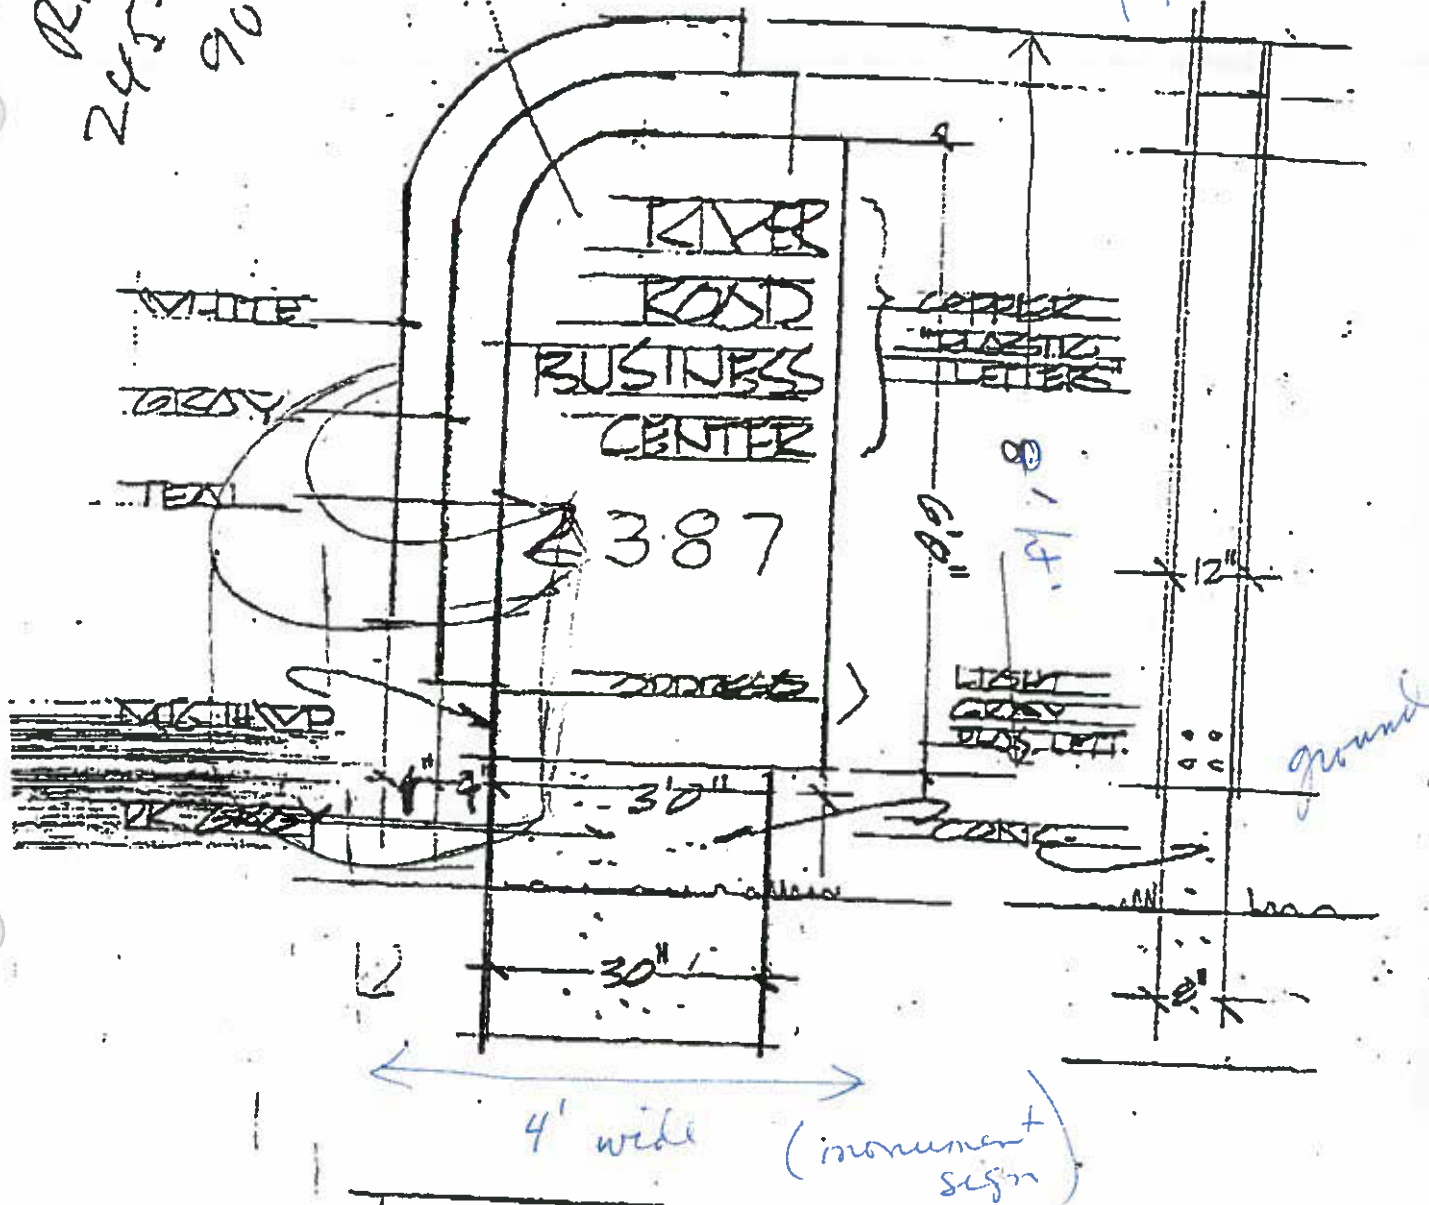 245
90
RIVER
ROAD
BUSINESS
CENTER
387
ADDRESS
WHITE
GRAY
TEAL
DK GRAY
COPPER
PLASTIC
LETTERS
LIGHT
GRAY
PLAS. LET.
CONC.
12"
3'0"
30"
8"
ground
4' wide
(monument
sign)